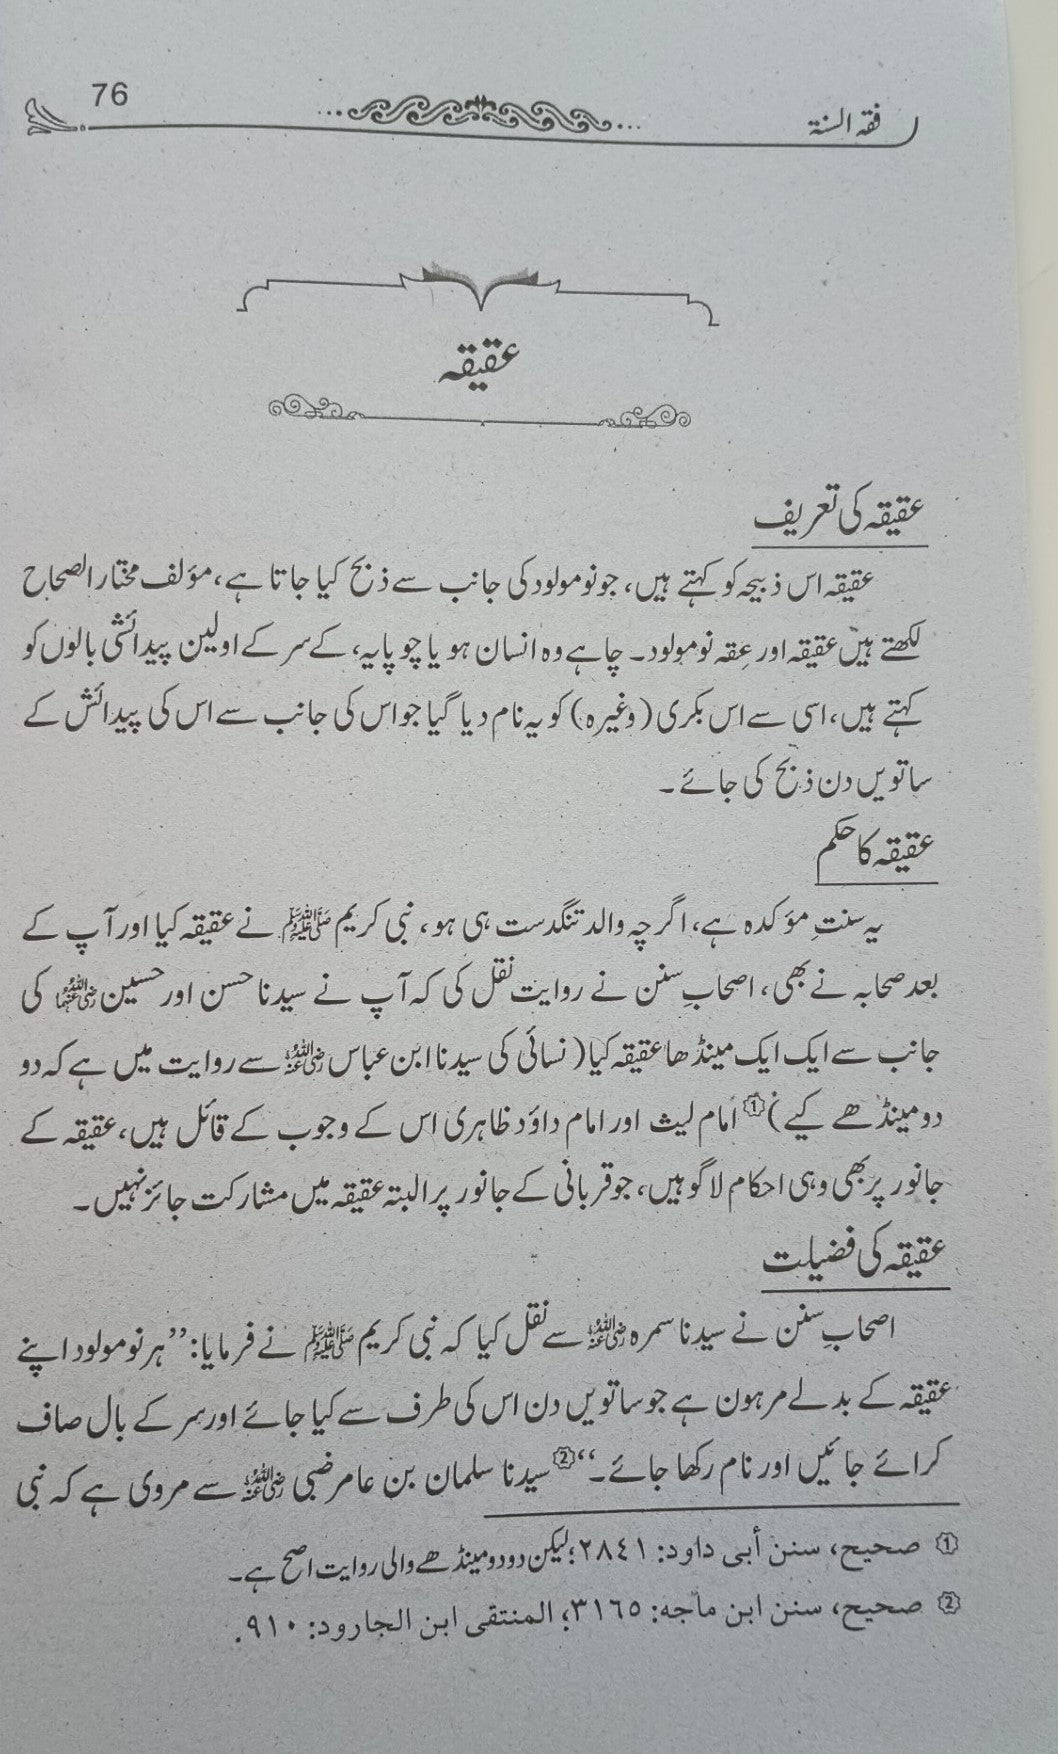 فقہ السنۃ
76
عقیقہ
عقیقہ کی تعریف
عقیقہ اس ذبیحہ کو کہتے ہیں، جو نومولود کی جانب سے ذبح کیا جاتا ہے، مؤلف مختار الصحاح
لکھتے ہیں عقیقہ اور عِقہ نومولود۔ چاہے وہ انسان ہو یا چوپایہ، کے سر کے اولین پیدائشی بالوں کو
کہتے ہیں، اسی سے اس بکری (وغیرہ) کو یہ نام دیا گیا جو اس کی جانب سے اس کی پیدائش کے
ساتویں دن ذبح کی جائے۔
عقیقہ کا حکم
یہ سنتِ مؤکدہ ہے، اگرچہ والد تنگدست ہی ہو، نبی کریم ﷺ نے عقیقہ کیا اور آپ کے
بعد صحابہ نے بھی، اصحابِ سنن نے روایت نقل کی کہ آپ نے سیدنا حسن اور حسین رضی اللہ عنہما کی
جانب سے ایک ایک مینڈھا عقیقہ کیا (نسائی کی سیدنا ابن عباس رضی اللہ عنہ سے روایت میں ہے کہ دو
دو مینڈھے کیے)① امام لیث اور امام داؤد ظاہری اس کے وجوب کے قائل ہیں، عقیقہ کے
جانور پر بھی وہی احکام لاگو ہیں، جو قربانی کے جانور پر البتہ عقیقہ میں مشارکت جائز نہیں۔
عقیقہ کی فضیلت
اصحابِ سنن نے سیدنا سمرہ رضی اللہ عنہ سے نقل کیا کہ نبی کریم ﷺ نے فرمایا: ’’ہر نومولود اپنے
عقیقہ کے بدلے مرہون ہے جو ساتویں دن اس کی طرف سے کیا جائے اور سر کے بال صاف
کرائے جائیں اور نام رکھا جائے۔‘‘② سیدنا سلمان بن عامر ضبی رضی اللہ عنہ سے مروی ہے کہ نبی
① صحیح، سنن أبی داود: ٢٨٤١؛ لیکن دو دو مینڈھے والی روایت اصح ہے۔
② صحیح، سنن ابن ماجه: ٣١٦٥؛ المنتقی ابن الجارود: ٩١٠.